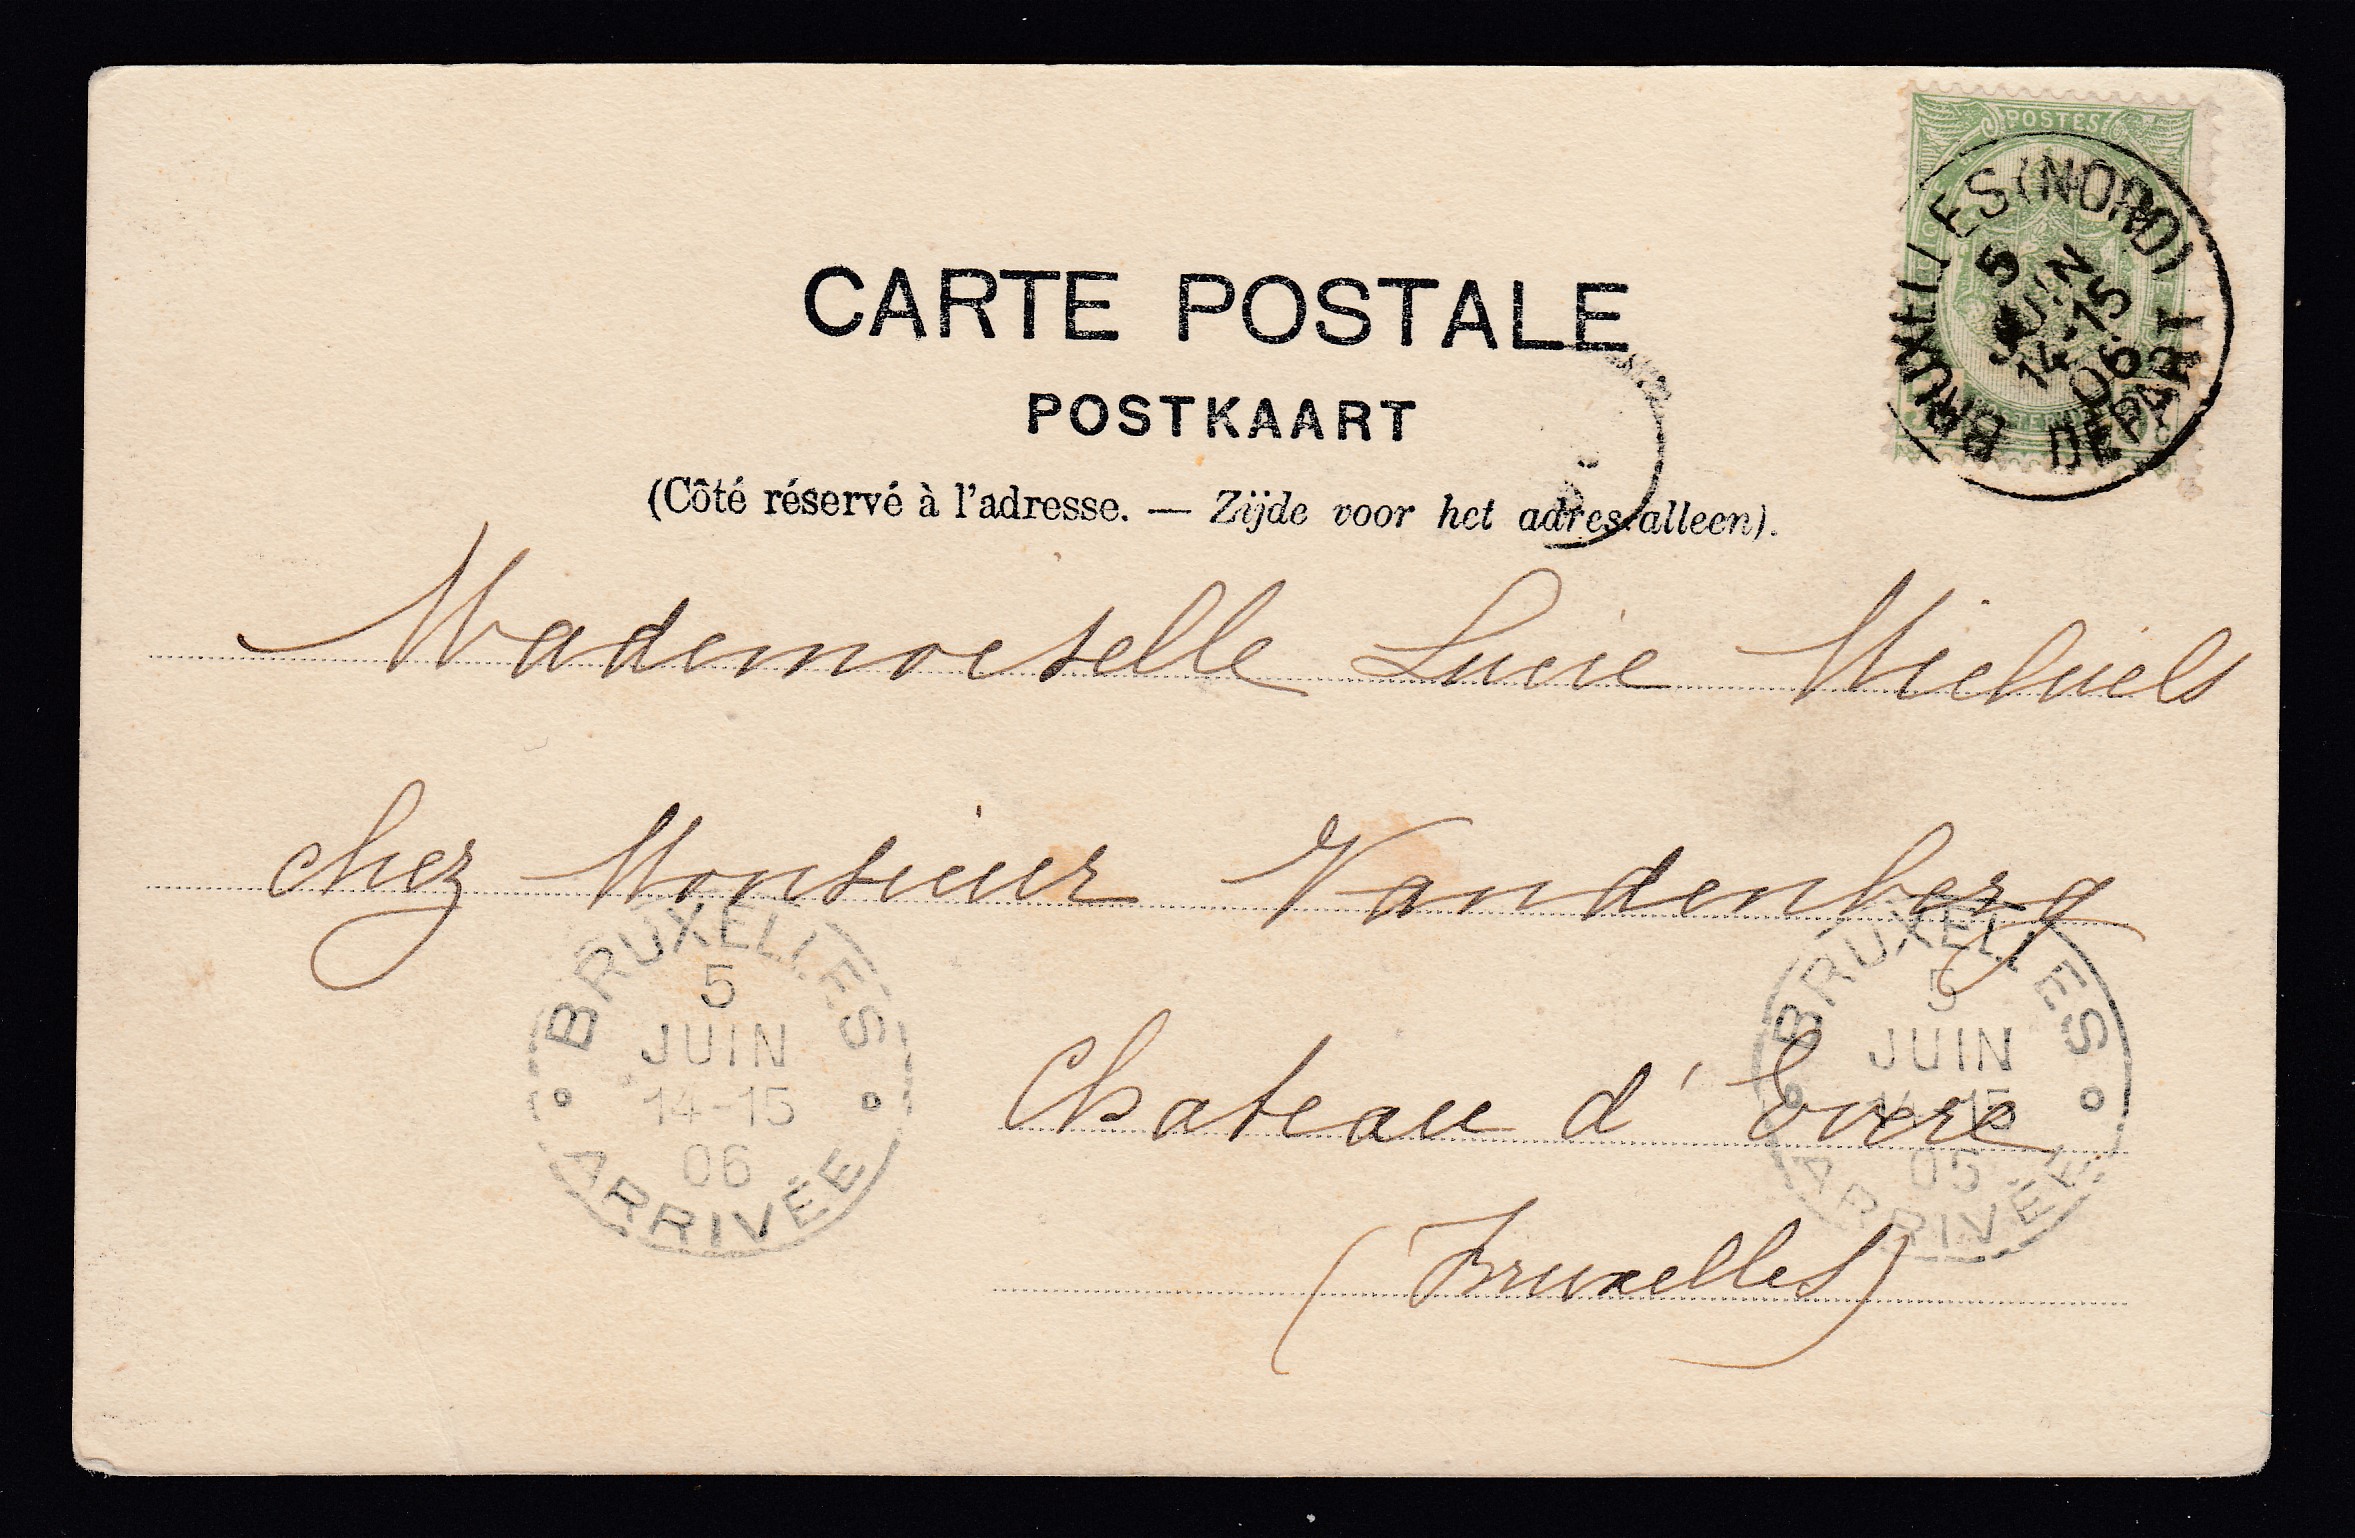 POSTES
BRUXELLES (NORD)
5
JUIN
14-15
06
DEPART
CARTE POSTALE
POSTKAART
(Côté réservé à l'adresse. — Zijde voor het adres alleen).
Mademoiselle Lucie Michiels
chez Monsieur Vandenberg
Chateau d'
(Bruxelles)
BRUXELLES
5
JUIN
14-15
06
ARRIVÉE
BRUXELLES
5
JUIN
14-15
05
ARRIVÉE